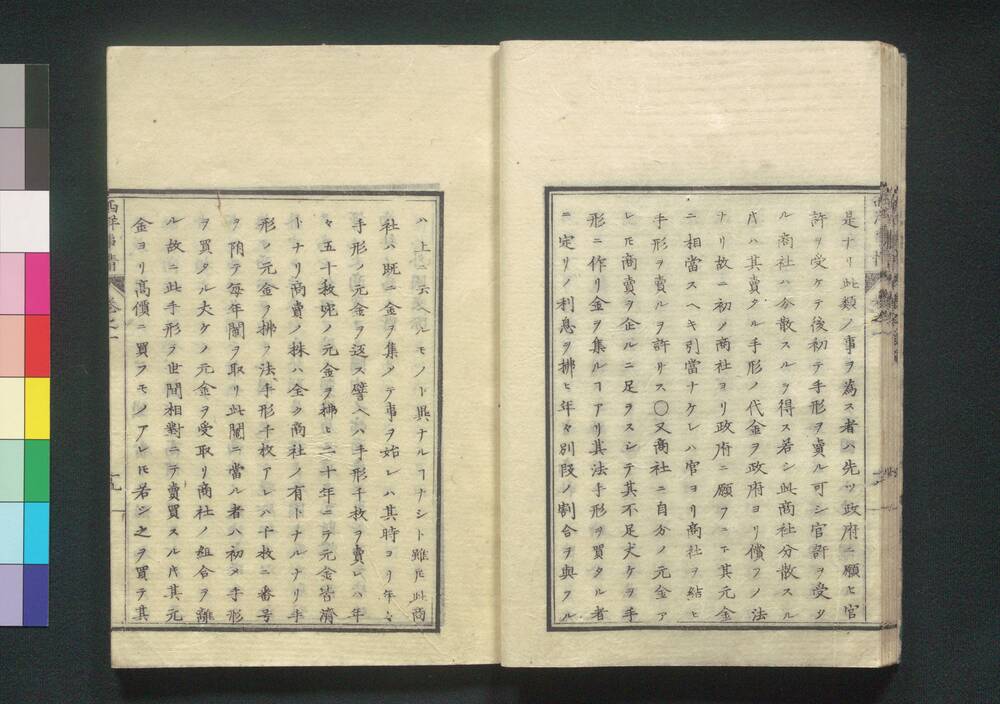 是ナリ此類ノ事ヲ為ス者ハ先ツ政府ニ願ヒ官
許ヲ受ケテ後初テ手形ヲ賣ル可シ官許ヲ受タ
ル商社ハ分散スルヲ得ス若シ此商社分散スル
時ハ其賣タル手形ノ代金ヲ政府ヨリ償フノ法
ナリ故ニ初ノ商社ヨリ政府ニ願フニハ其元金
ニ相當スヘキ引當ナケレハ官ヨリ商社ヲ結ヒ
手形ヲ賣ルヲ許サス〇又商社ニ自分ノ元金ア
レ𪜈商賣ヲ企ルニ足ラスシテ其不足大ケヲ手
形ニ作リ金ヲ集ルヿアリ其法手形ヲ買タル者
ニ定リノ利息ヲ拂ヒ年々別段ノ割合ヲ與フル
ハ上ニ云ヘルモノト異ナルヿナシト雖𪜈此商
社ハ既ニ金ヲ集メテ事ヲ始レハ其時ヨリ年々
手形ノ元金ヲ返ス譬ヘハ手形千枚ヲ賣レハ年
々五十枚宛ノ元金ヲ拂ヒ二十年ニテ元金皆濟
トナリ商賣ノ株ハ全ク商社ノ有トナルナリ手
形ノ元金ヲ拂フ法手形千枚アレハ千枚ニ番号
ヲ附テ毎年鬮ヲ取リ此鬮ニ當ル者ハ初メ手形
ヲ買タル大ケノ元金ヲ受取リ商社ノ組合ヲ離
ル故ニ此手形ヲ世間相對ニテ賣買スル𪜈其元
金ヨリ高價ニ買フモノアレ𪜈若シ之ヲ買テ其
西洋事情
巻之一
十九